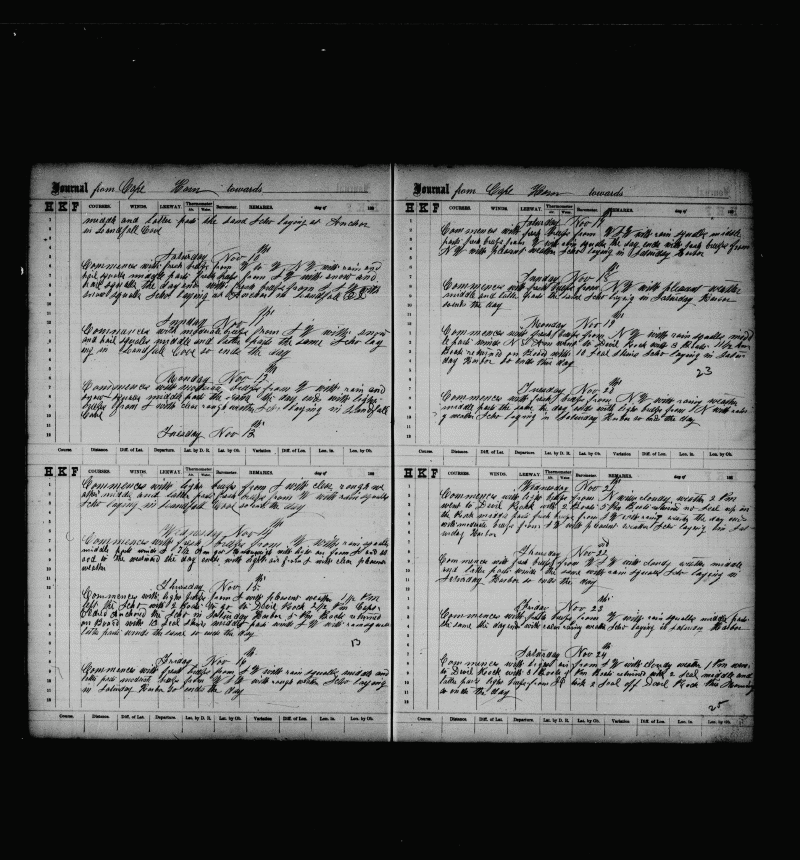 Journal from Cape Horn towards
H K F COURSES. WINDS. LEEWAY. Thermometer Barometer. REMARKS. day of 188
middle and latter parts the same Schr laying at Anchor
in Landfall Cove
Saturday Nov 10th
Commences with fresh breeze from W to N W with rain and
hail squalls middle parts fresh breeze from W with snow and
hail squalls the day ends with fresh breeze from
snow squalls Schr laying at Anchor in Landfall Cove
Sunday Nov 11th
Commences with moderate breeze from S W with snow
and hail squalls middle and latter parts the same Schr lay
ing in Landfall Cove so ends the day
Monday Nov 12th
Commences with moderate breeze from W with rain and
snow squalls middle parts the same the day ends with light
breeze from S with clear rough weather Schr laying in Landfall
Cove
Tuesday Nov 13th
Course. Distance. Diff. of Lat. Departure. Lat. by D. R. Lat. by Ob. Variation Diff. of Lon. Lon. in. Lon. by Ob.
H K F COURSES. WINDS. LEEWAY. Thermometer Barometer. REMARKS. day of 188
Commences with light breeze from S with clear rough we
ather middle and latter parts fresh breeze from W with rain squalls
Schr laying in Landfall Cove so ends the day
Wednesday Nov 14th
Commences with fresh breeze from W with rain squalls
middle parts winds S with light air from
the day ends with light air from S with clear pleasant
weather
Thursday Nov 15th
Commences with light breeze from S with pleasant weather 1 Pm
left the Schr with 2 Boats to go to Devil Rock 2 Pm Capt
anchored the Schr in Saturday Harbor Pm Boats returned
on Board with 13 Seal Skins middle parts winds S W with rain squalls
latter parts winds the same so ends the day
13
Friday Nov 16th
Commences with fresh breeze from S W with rain squalls middle and
latter parts moderate breeze from W with rough weather Schr laying
in Saturday Harbor so ends the day
Course. Distance. Diff. of Lat. Departure. Lat. by D. R. Lat. by Ob. Variation Diff. of Lon. Lon. in. Lon. by Ob.
Journal from Cape Horn towards
H K F COURSES. WINDS. LEEWAY. Thermometer Barometer. REMARKS. day of 188
Saturday Nov 17th
Commences with fresh breeze from W S W with rain squalls middle
parts fresh breeze from W with squalls the day ends with fresh breeze from
N W with pleasant weather Schr laying in Saturday Harbor
Sunday Nov 18th
Commences with fresh breeze from N W with pleasant weather
middle and latter parts the same Schr laying in Saturday Harbor
so ends the day
Monday Nov 19th
Commences with fresh breeze from N W with rain squalls midd
le parts winds N went to Devil Rock with 3 Boats Pm
Boats returned on Board with 10 Seal Skins Schr laying in Satur
day Harbor so ends this day
23
Tuesday Nov 20th
Commences with fresh breeze from N W with rainy weather
middle parts the same the day ends with light breeze from N with rain
y weather Schr laying in Saturday Harbor so ends the day
Course. Distance. Diff. of Lat. Departure. Lat. by D. R. Lat. by Ob. Variation Diff. of Lon. Lon. in. Lon. by Ob.
H K F COURSES. WINDS. LEEWAY. Thermometer Barometer. REMARKS. day of 188
Wednesday Nov 21st
Commences with light breeze from N with cloudy weather 2 Pm
went to Devil Rock with 2 Boats 5 Pm Boats returned no Seal up on
the Rock middle parts fresh breeze from N with rainy weather the day ends
with moderate breeze from S W with pleasant weather Schr laying in Sat
urday Harbor
Thursday Nov 22nd
Commences with fresh breeze from W S W with cloudy weather middle
and latter parts winds the same with rain squalls Schr laying in
Saturday Harbor so ends the day
Friday Nov 23
Commences with fresh breeze from W with rain squalls middle parts
the same the day ends with calm rainy weather Schr laying in Saturday Harbor
Saturday Nov 24
Commences with light air from S W with cloudy weather 1 Pm went
to Devil Rock with 3 Boats Pm Boats returned with 2 Seal middle and
latter parts light breeze from took 2 Seal off Devil Rock this Morning
so ends the day
25
Course. Distance. Diff. of Lat. Departure. Lat. by D. R. Lat. by Ob. Variation Diff. of Lon. Lon. in. Lon. by Ob.